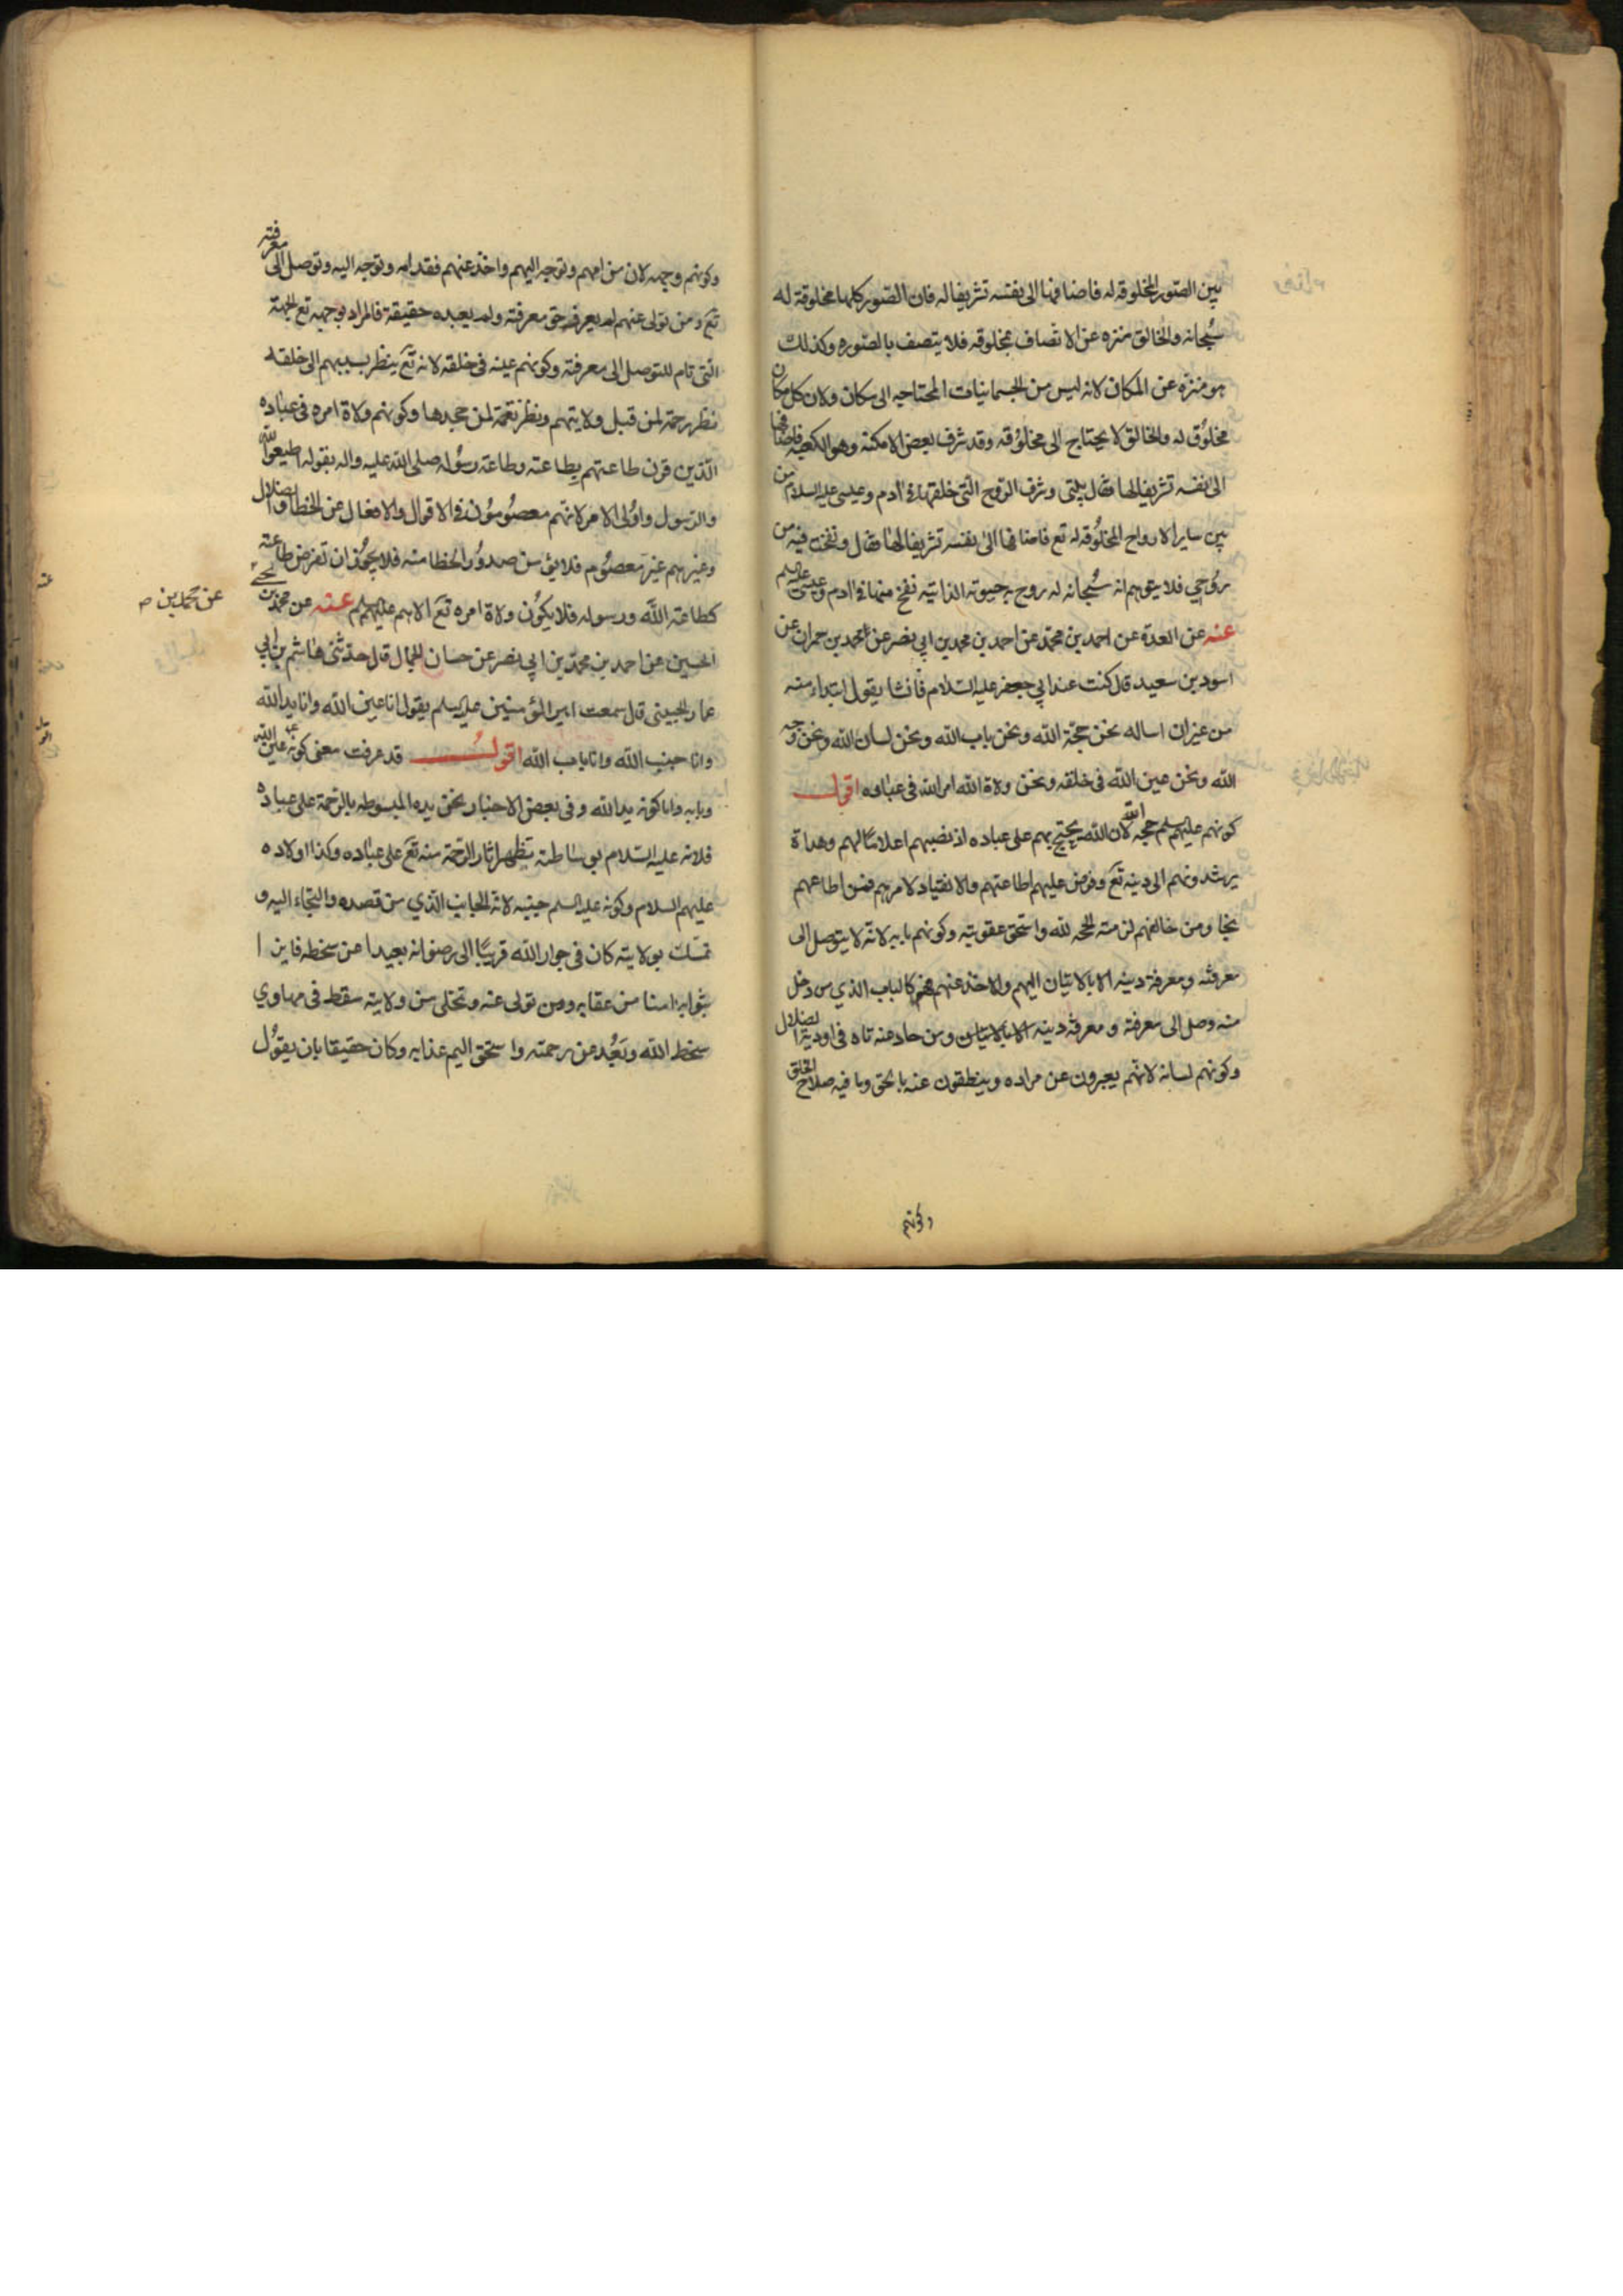 بين الصور المخلوقه له فاضافها الى نفسه تشريفا له فان الصور كلها مخلوقة له
سُبحانه والخالق منزه عن الاتصاف بمخلوقه فلا يتصف بالصّوره وكذلك
هو منزه عن المكان لانه ليس من الجسمانيات المحتاجه الى مكان ولان كل مكان
مخلوُق له والخالق لا يحتاج الى مخلوُقه وقد شرف بعض الامكنة وهو الكعبه فاضافها
الى نفسه تشريفا لها فقال بيتى وشرف الروح التى خلقها فى ادم وعيسى عليه السلام من
بين ساير الارواح المخلوُقه له تع فاضافها الى نفسه تشريفا لها فقال ونفخت فيه من
روُحي فلا يتوهم انه سُبحانه له روح به حيوته الذاتيه نفخ منها فى ادم وعيسى عليهما السلم
عنه عن العدة عن احمد بن محمّد عن احمد بن محمد بن ابي نصر عن محمد بن حمران عن
اسود بن سعيد قال كنت عند ابي جعفر عليه السّلام فانشا يقول ابتداء منه
من غير ان اساله نحن حجّة الله ونحن باب الله ونحن لسان الله ونحن وجه
الله ونحن عين الله فى خلقه ونحن ولاة الله امر الله فى عباده اقول
كونهم عليهم السلم حجه الله لان الله يحتج بهم على عباده اذ نصبهم اعلاما لهم وهداة
يرشدونهم الى دينه تع وفرض عليهم اطاعتهم والانقياد لامرهم فمن اطاعهم
نجا ومن خالفهم لزمته الحجه لله واستحق عقوبته وكونهم بابه لانه لا يتوصل الى
معرفته ومعرفة دينه الا بالاتيان اليهم والاخذ عنهم فهم كالباب الذي من دخل
منه وصل الى معرفة و معرفة دينه الا بالاتيان ومن حاد عنه تاه فى اودية الضلال
وكونهم لسانه لانهم يعبرون عن مراده وينطقون عنه بالحق وما فيه صلاح الخلق
وكونهم
وكونهم وجهه لان من امهم وتوجه اليهم واخذ عنهم فقد امه وتوجه اليه وتوصل الى معرفته
تع ومن تولى عنهم لم يعرفه حق معرفته ولم يعبده حقيقة فالمراد بوجهه تع الجهة
التى تام للتوصل الى معرفته وكونهم عينه فى خلقه لانه تع ينظر بسببهم الى خلقه
نظر رحمة لمن قبل ولايتهم ونظر نقمة لمن جحدها وكونهم ولاة امره فى عباده
الّذين قرن طاعتهم بطاعته وطاعة رسُوله صلى الله عليه واله بقوله اطيعوا الله
والرسول واوُلى الامر لانهم معصوُموُن فى الاقوال والافعال عن الخطا والضلال
وغيرهم غير معصوُم فلا يؤمن صدوُر الخطا منه فلا يجوُز ان تفرض طاعته
كطاعة الله ورسوله فلا يكوُن ولاة امره تع الا هم عليهم السلم عنه عن محمد بن يحيى
عن محمد بن صح
الحسين عن احمد بن محمّد بن ابي نصر عن حسان الجمال قال حدثنى هاشم بن ابي
عمار الجنبي قال سمعت امير المؤمنين عليه السلم يقول انا عين الله وانا يد الله
وانا جنب الله وانا باب الله اقول قد عرفت معنى كونه ع عين الله
وبابه واما كونه يد الله وفى بعض الاخبار نحن يده المبسوطه بالرحمة على عباده
فلانه عليه السّلام بوساطته يظهر اثار الرحمة منه تع على عباده وكذا اولاده
عليهم السلام وكونه عليه السلم جنبه لانه الجانب الذي من قصده والتجاء اليه و
تمسك بولايته كان فى جوار الله قريبا الى رضوانه بعيدا عن سخطه فايزا
بثوابه امنا من عقابه ومن تولى عنه وتخلى من ولايته سقط فى مهاوي
سخط الله وبَعُد عن رحمته واستحق اليم عذابه وكان حقيقا بان يقوُل